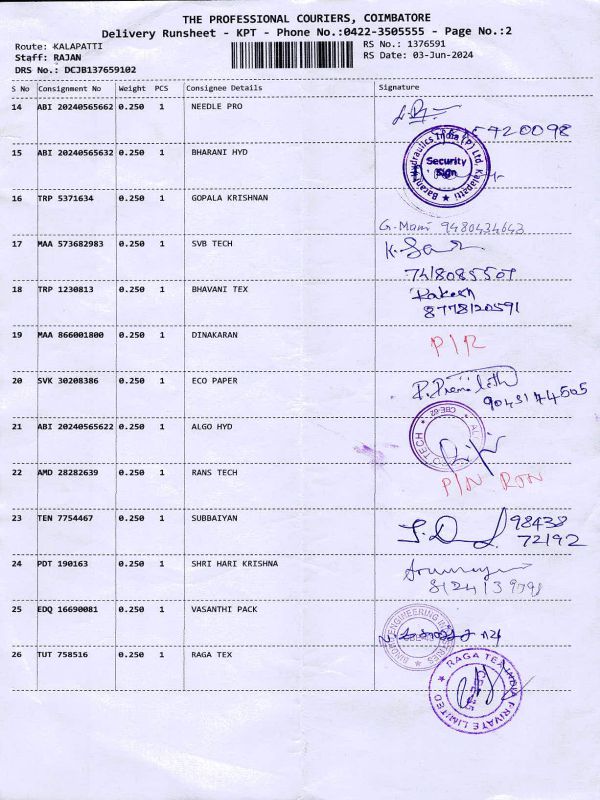 THE PROFESSIONAL COURIERS, COIMBATORE
Delivery Runsheet - KPT - Phone No.:0422-3505555 - Page No.:2
Route: KALAPATTI
Staff: RAJAN
DRS No.: DCJB137659102
RS No.: 1376591
RS Date: 03-Jun-2024
S No Consignment No Weight PCS Consignee Details Signature
14 ABI 20240565662 0.250 1 NEEDLE PRO
15 ABI 20240565632 0.250 1 BHARANI HYD
Security
Sign
16 TRP 5371634 0.250 1 GOPALA KRISHNAN
G. Mani 9480434643
17 MAA 573682983 0.250 1 SVB TECH
7418085509
18 TRP 1230813 0.250 1 BHAVANI TEX Rakesh
8778120591
19 MAA 866001800 0.250 1 DINAKARAN P/R
20 SVK 30208386 0.250 1 ECO PAPER
21 ABI 240565622 0.250 1 ALGO HYD
22 AMD 28282639 0.250 1 RANS TECH
P/N RTN
23 TEN 7754467 0.250 1 SUBBAIYAN 98438
72192
24 PDT 190163 0.250 1 SHRI HARI KRISHNA
25 EDQ 16690081 0.250 1 VASANTHI PACK
26 TUT 758516 0.250 1 RAGA TEX
RAGA TEX INDIA PRIVATE LIMITED